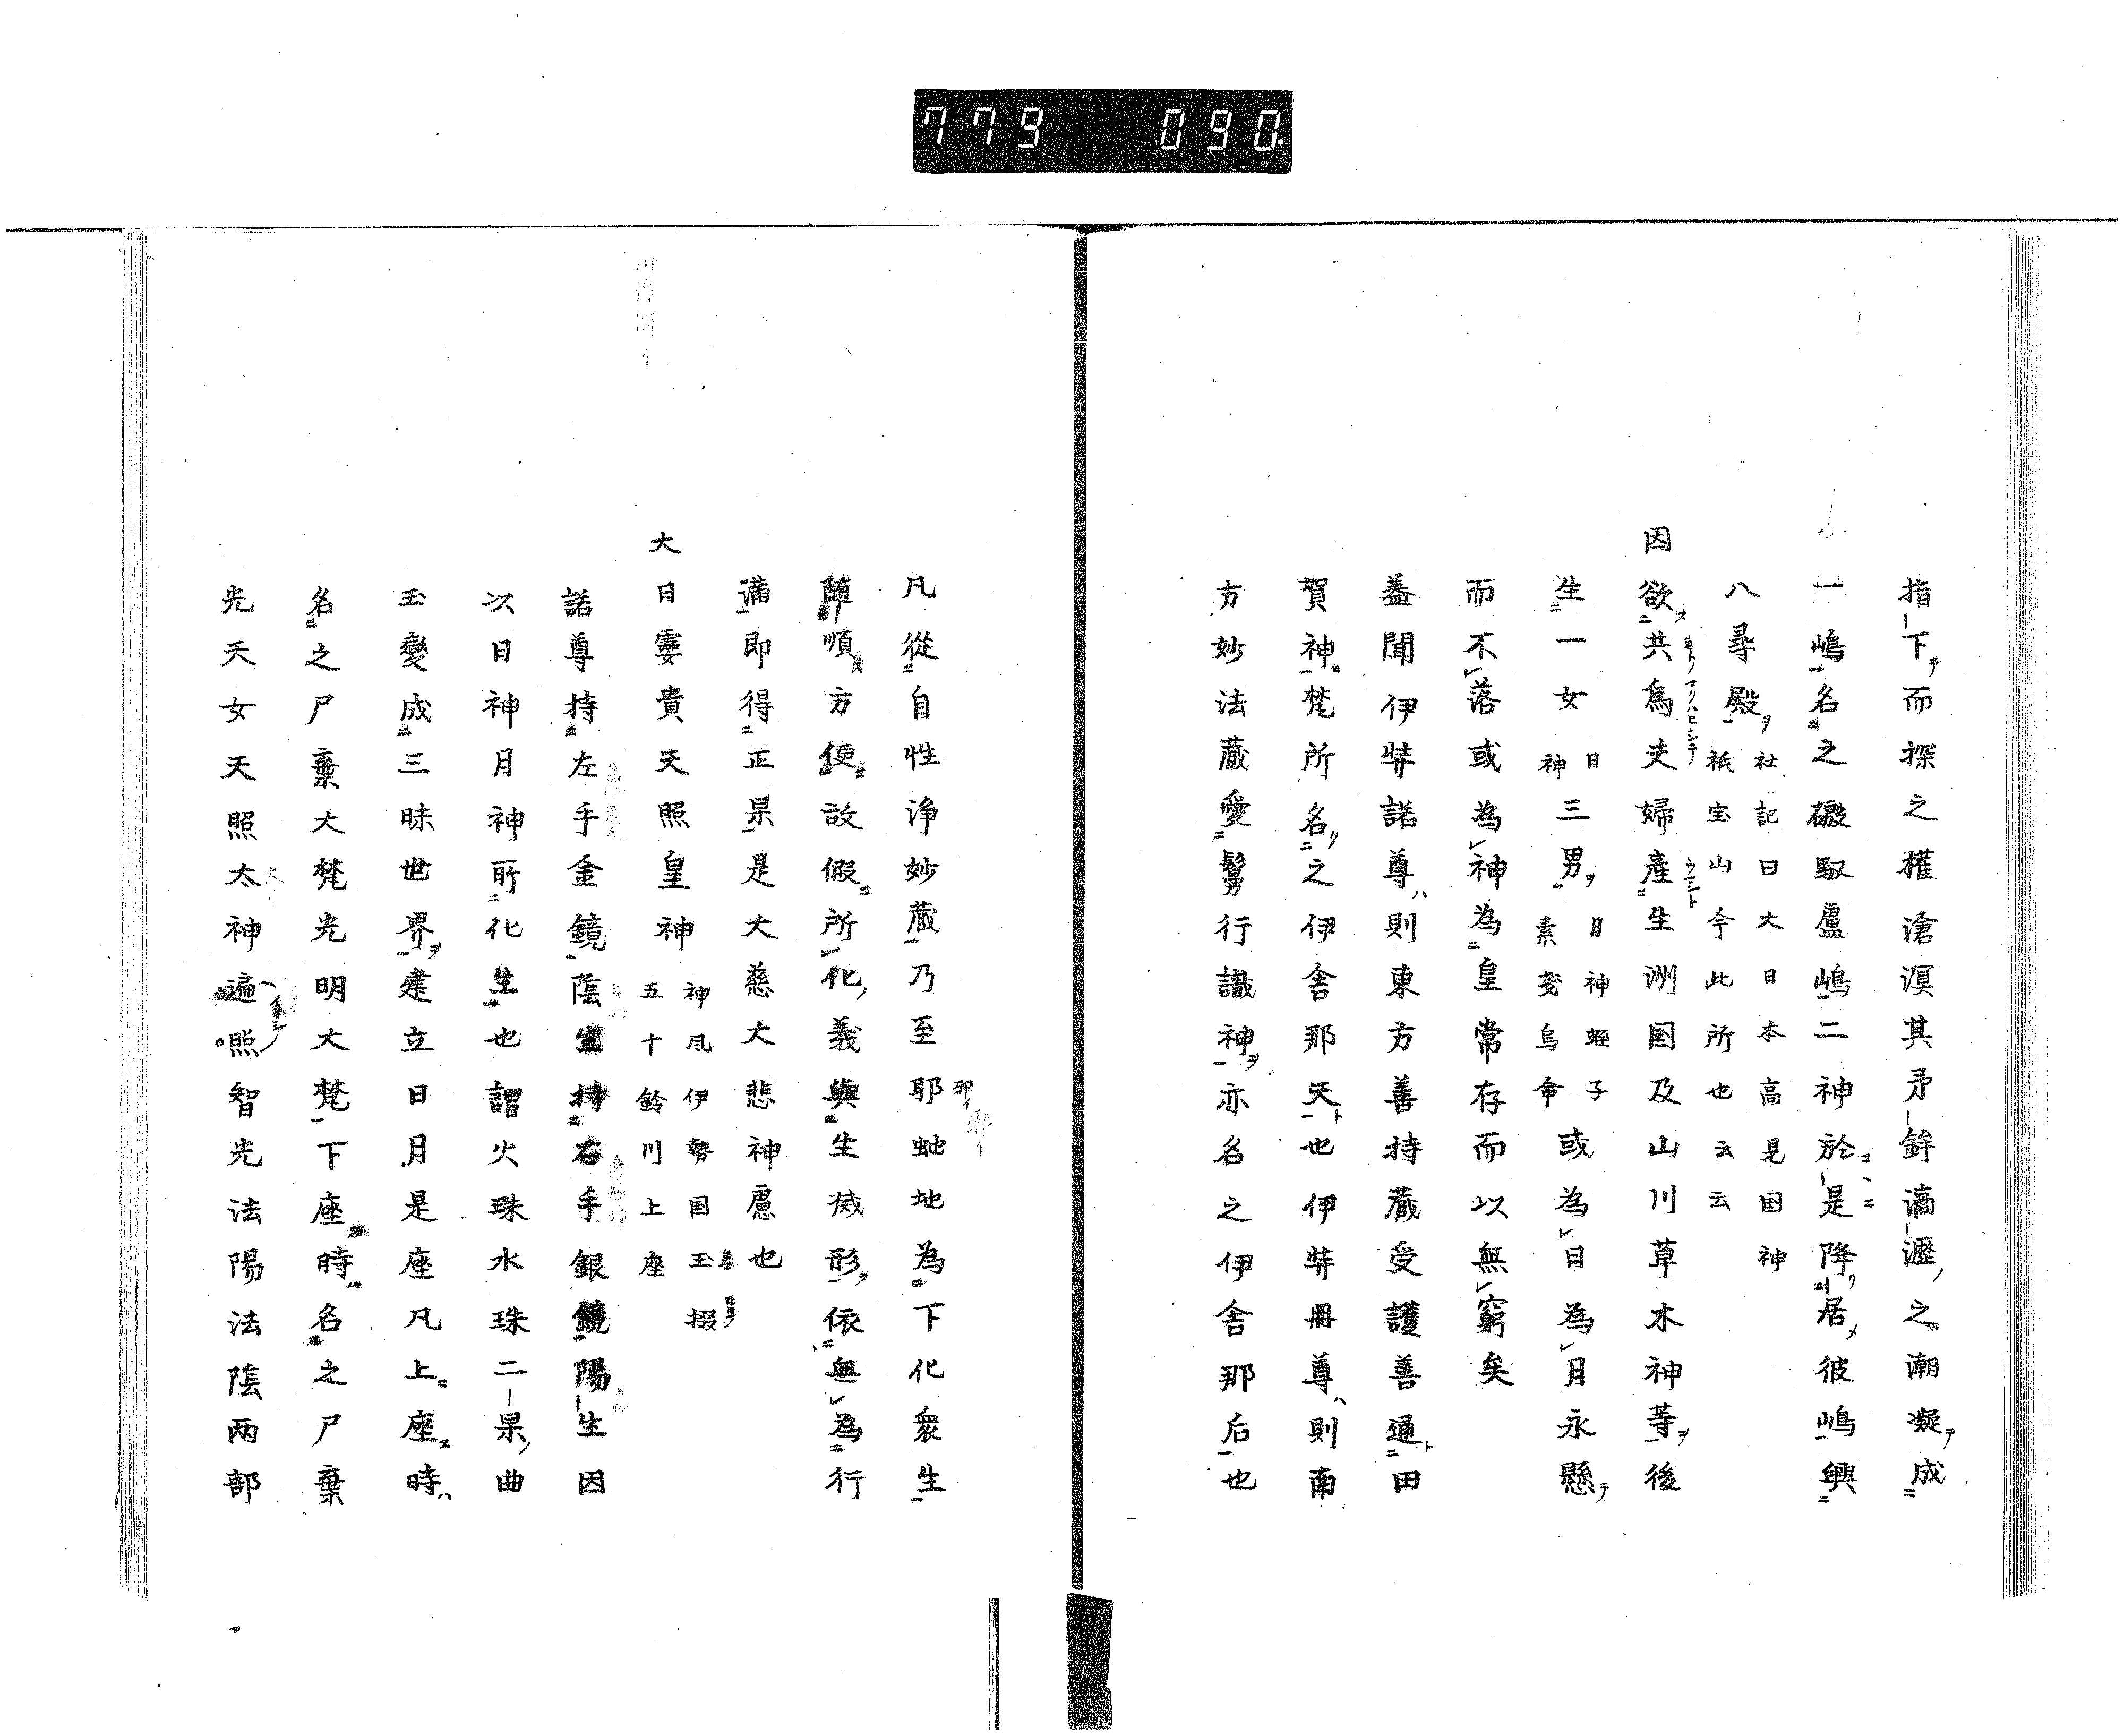 779 090
指下而探之獲滄溟其矛鉾滴瀝之潮凝成
一嶋名之磤馭盧嶋二神於是降居彼嶋興
八尋殿社記曰大日本高見国神祇宝山今此所也云云
因欲共為夫婦産生洲国及山川草木神等後
生一女日神三男月神蛭子素戔烏命或為日為月永懸
而不落或為神為皇常存而以無窮矣
蓋聞伊弉諾尊則東方善持蔵受護善通田
賀神梵所名之伊舎那天也伊弉冊尊則南
方妙法蔵愛鬘行識神亦名之伊舎那后也
凡従自性浄妙蔵乃至耶虵地為下化衆生
随順方便故假所化義與生滅形依無為行
満即得正果是大慈大悲神慮也
大日孁貴天照皇神神風伊勢国玉掇五十鈴川上座
諾尊持左手金鏡陰生持右手銀鏡陽生因
以日神月神所化生也謂火珠水珠二果曲
玉變成三昧世界建立日月是座凡上座時
名之尸棄大梵光明大梵下座時名之尸棄
光天女天照太神遍照智光法陽法陰両部